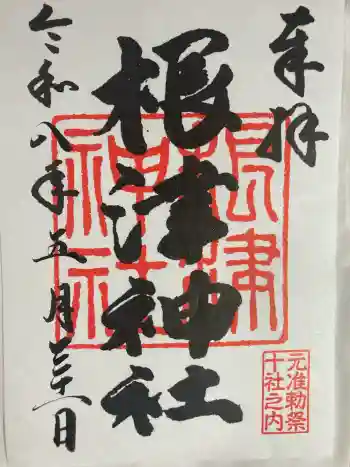 奉拝
根津神社
根津神社
元准勅祭
十社之内
令和八年五月三十一日